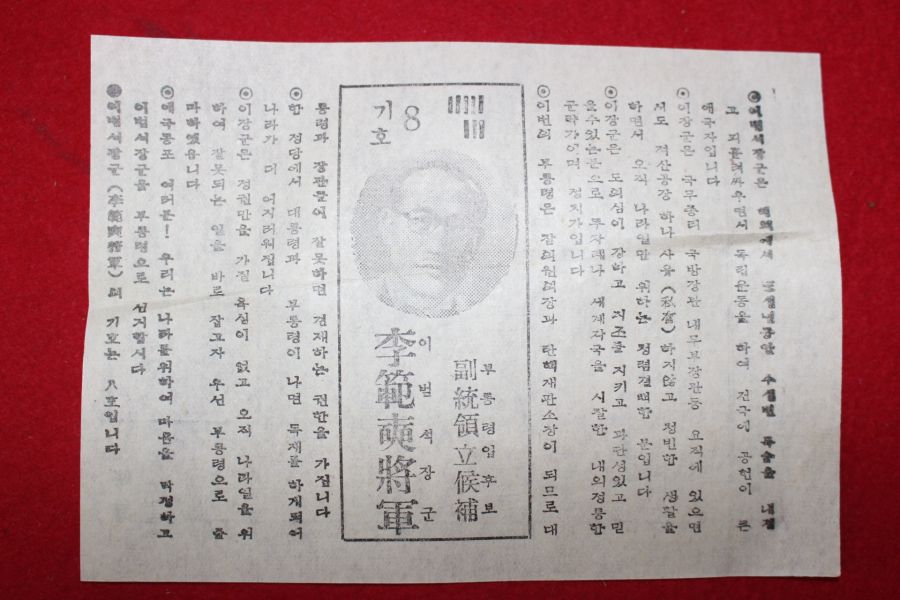 ◉이범석장군은 해외에서 수십번 목숨을 내걸
고 피흘려싸우면서 독립운동을 하여 건국에 공헌이 큰
애국자입니다
◉이장군은 국무총리 국방장관 내무부장관등 요직에 있으면
서도 적산공장 하나 사욕(私慾)하지않고 청빈한 생활을
하면서 오직 나라일만 위하는 청렴결백한 분입니다
◉이장군은 도의심이 강하고 지조를 지키고 과단성있고 믿
을수있는분으로 세계각국을 시찰한 내외정통한
군략가이며 정치가입니다
◉이번의 부통령은 참의원의장과 탄핵재판소장이 되므로 대
기호 8
부통령입후보
副統領立候補
이범석장군
李範奭將軍
통령과 장관들이 잘못하면 견제하는 권한을 가집니다
한 정당에서 대통령과 부통령이 나면 독재를 하게되어
나라가 더 어지러워집니다
◉이장군은 정권만을 가질 욕심이 없고 오직 나라일을 위
하여 잘못되는 일을 바로 잡고자 우선 부통령으로 출
마하였읍니다
◉애국동포 여러분! 우리는 나라를위하여 마음을 작정하고
이범석장군을 부통령으로 선거합시다
◉이범석장군(李範奭將軍)의 기호는 八호입니다